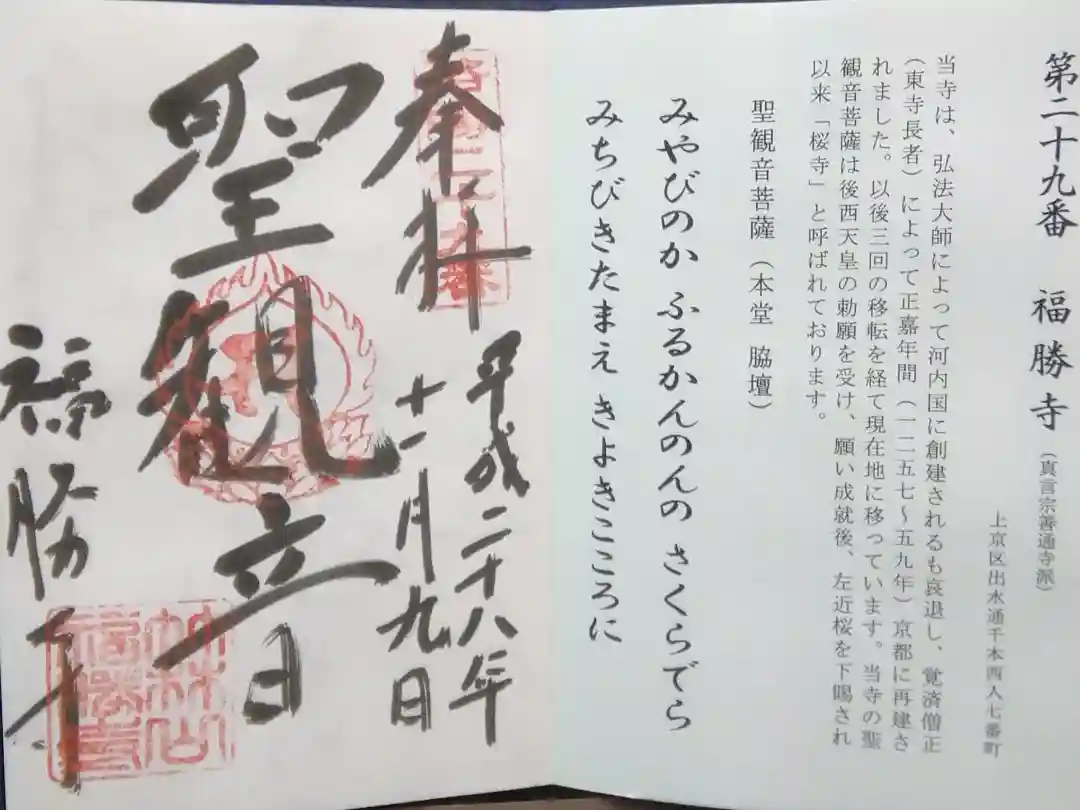 第二十九番 福勝寺(真言宗善通寺派)
上京区出水通千本西入七番町
当寺は、弘法大師によって河内国に創建されるも哀退し、覚済僧正
(東寺長者)によって正嘉年間(一二五七~五九年)京都に再建さ
れました。以後三回の移転を経て現在地に移っています。当寺の聖
観音菩薩は後西天皇の勅願を受け、願い成就後、左近桜を下賜され
以来「桜寺」と呼ばれております。
聖観音菩薩(本堂 脇壇)
みやびのか ふるかんのんの さくらでら
みちびきたまえ きよきこころに
奉拝
平成二十八年
十一月九日
聖観音
福勝寺